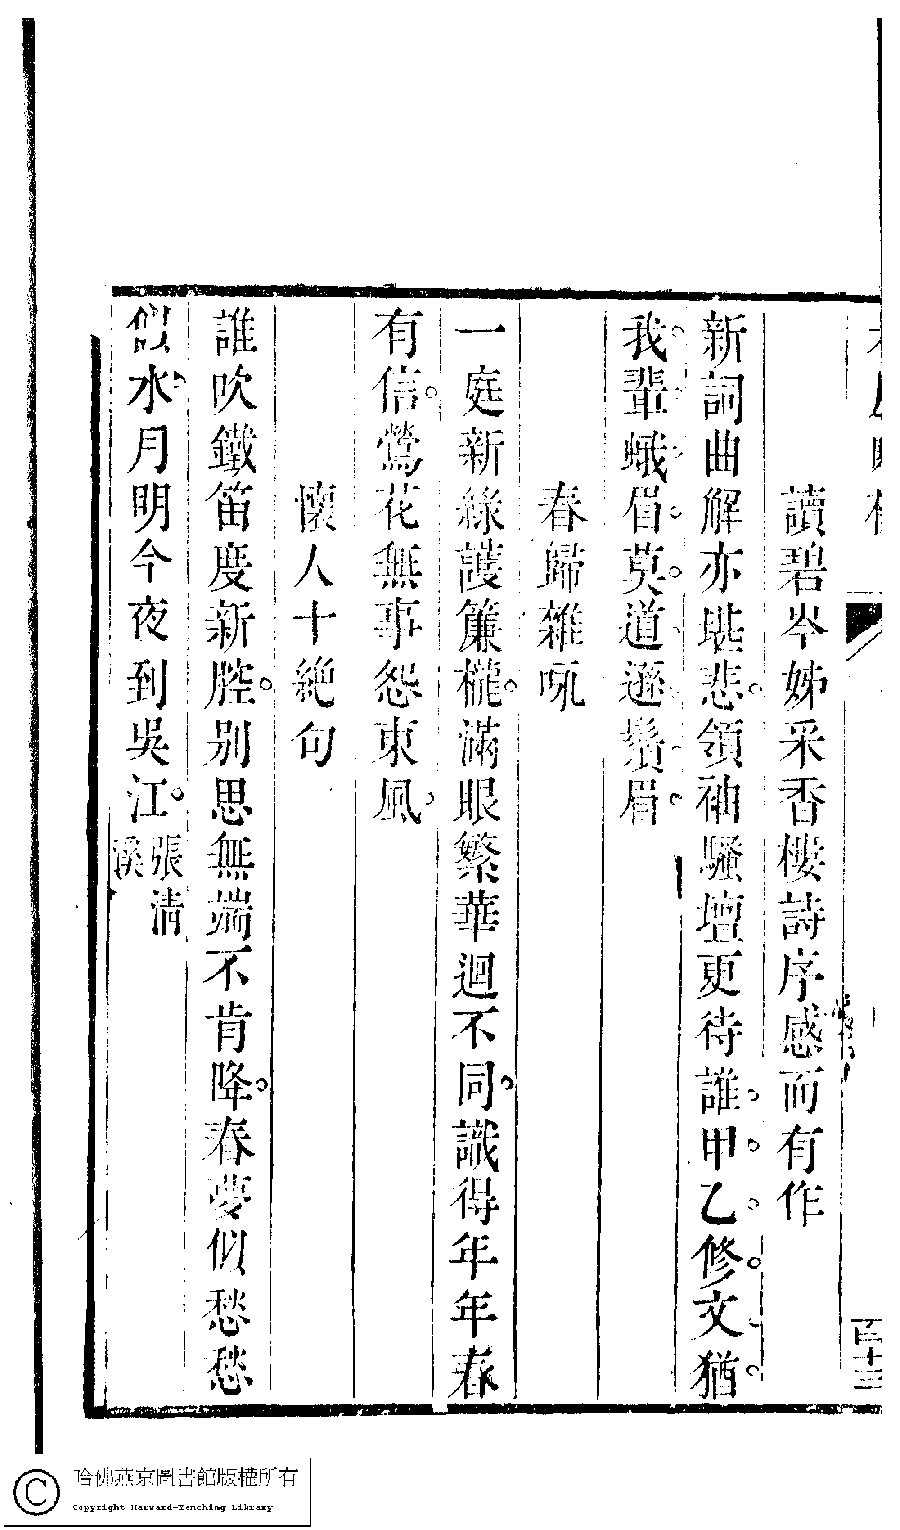 百十三
讀碧岑姊采香樓詩序感而有作
新詞曲解亦堪悲領袖騷壇更待誰甲乙修文猶
我輩蛾眉莫道遜鬚眉
春歸雜吼
一庭新綠護簾櫳滿眼繁華迴不同識得年年春
有信鶯花無事怨東風
懷人十絶句
誰吹鐵笛度新腔别思無端不肯降春夢似愁愁
似水月明今夜到吳江張清
溪
哈佛燕京圖書館版權所有
Copyright Harvard-Yenching Library